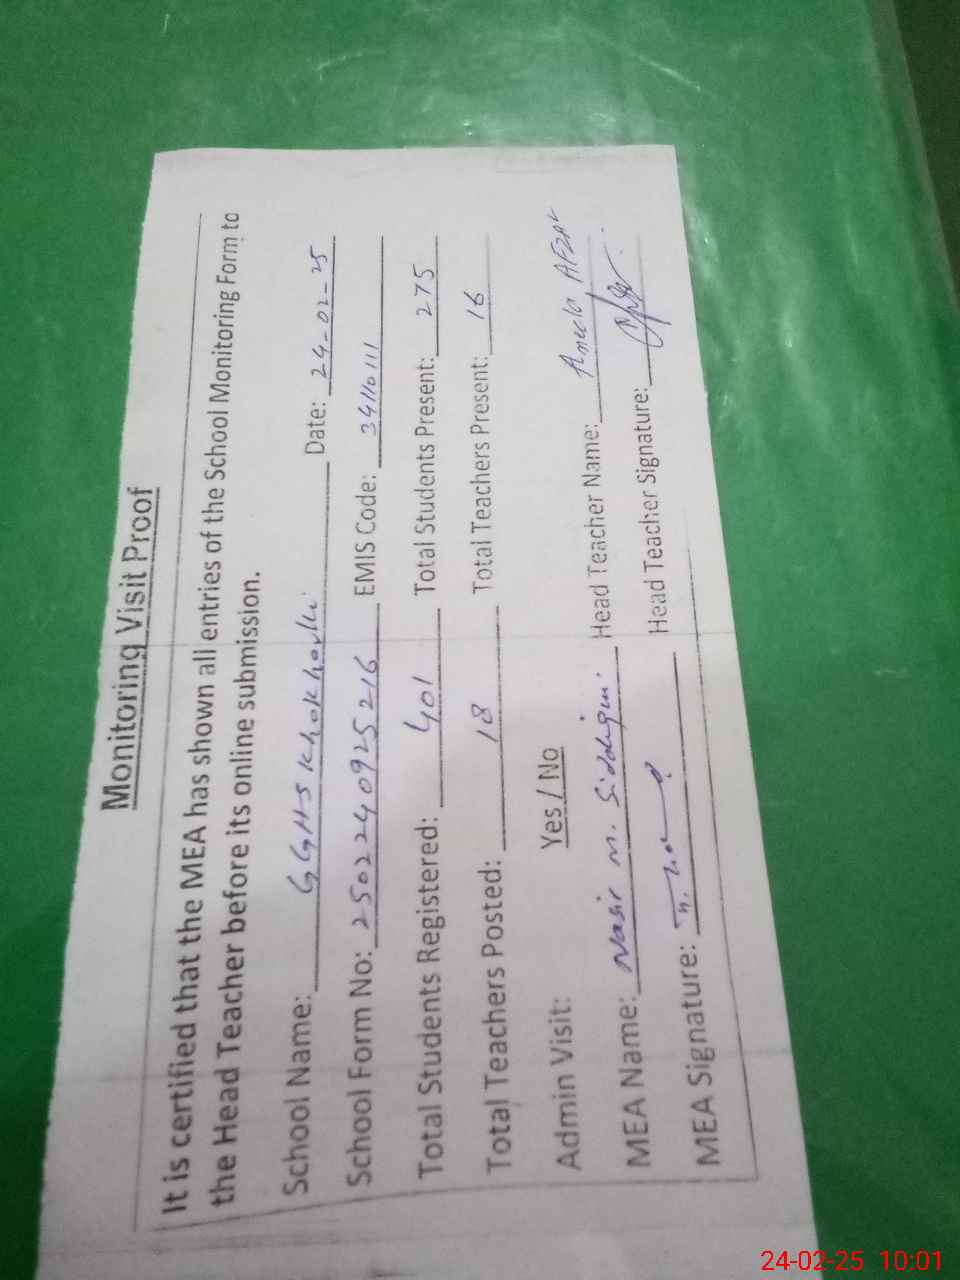 Monitoring Visit Proof
It is certified that the MEA has shown all entries of the School Monitoring Form to
the Head Teacher before its online submission.
School Name: GGHS Khokharki Date: 24-02-25
School Form No: 2502240925216 EMIS Code: 34110111
Total Students Registered: 401 Total Students Present: 275
Total Teachers Posted: 18 Total Teachers Present: 16
Admin Visit: Yes / No
MEA Name: Nasir M. Siddiqui Head Teacher Name: AFZAL
MEA Signature: Head Teacher Signature:
24-02-25 10:01